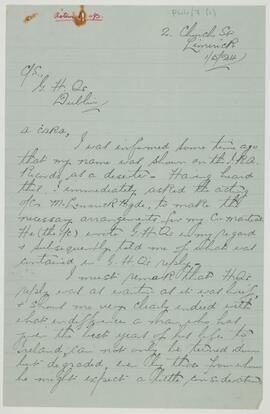 2. Church St
Limerick
1/5/24
G. H. Qs
Dublin
a Cara,
I was informed some time ago
that my name was shown on the I.R.A.
Records, as a deserter. Having heard
this I immediately asked the acting
O/c M. Limerick Bgde, to make the
necessary arrangements for my Ct martial
He (the O/C) wrote G.H.Qs in my regard
& subsequently told me of what was
contained in G.H.Qs reply.
I must remark that HQs
reply
& me very clearly indeed with
what indifference a man who has
given the best years of his life to
Ireland, can not only be turned down
but degraded, by those from whom
he might expect a little consideration